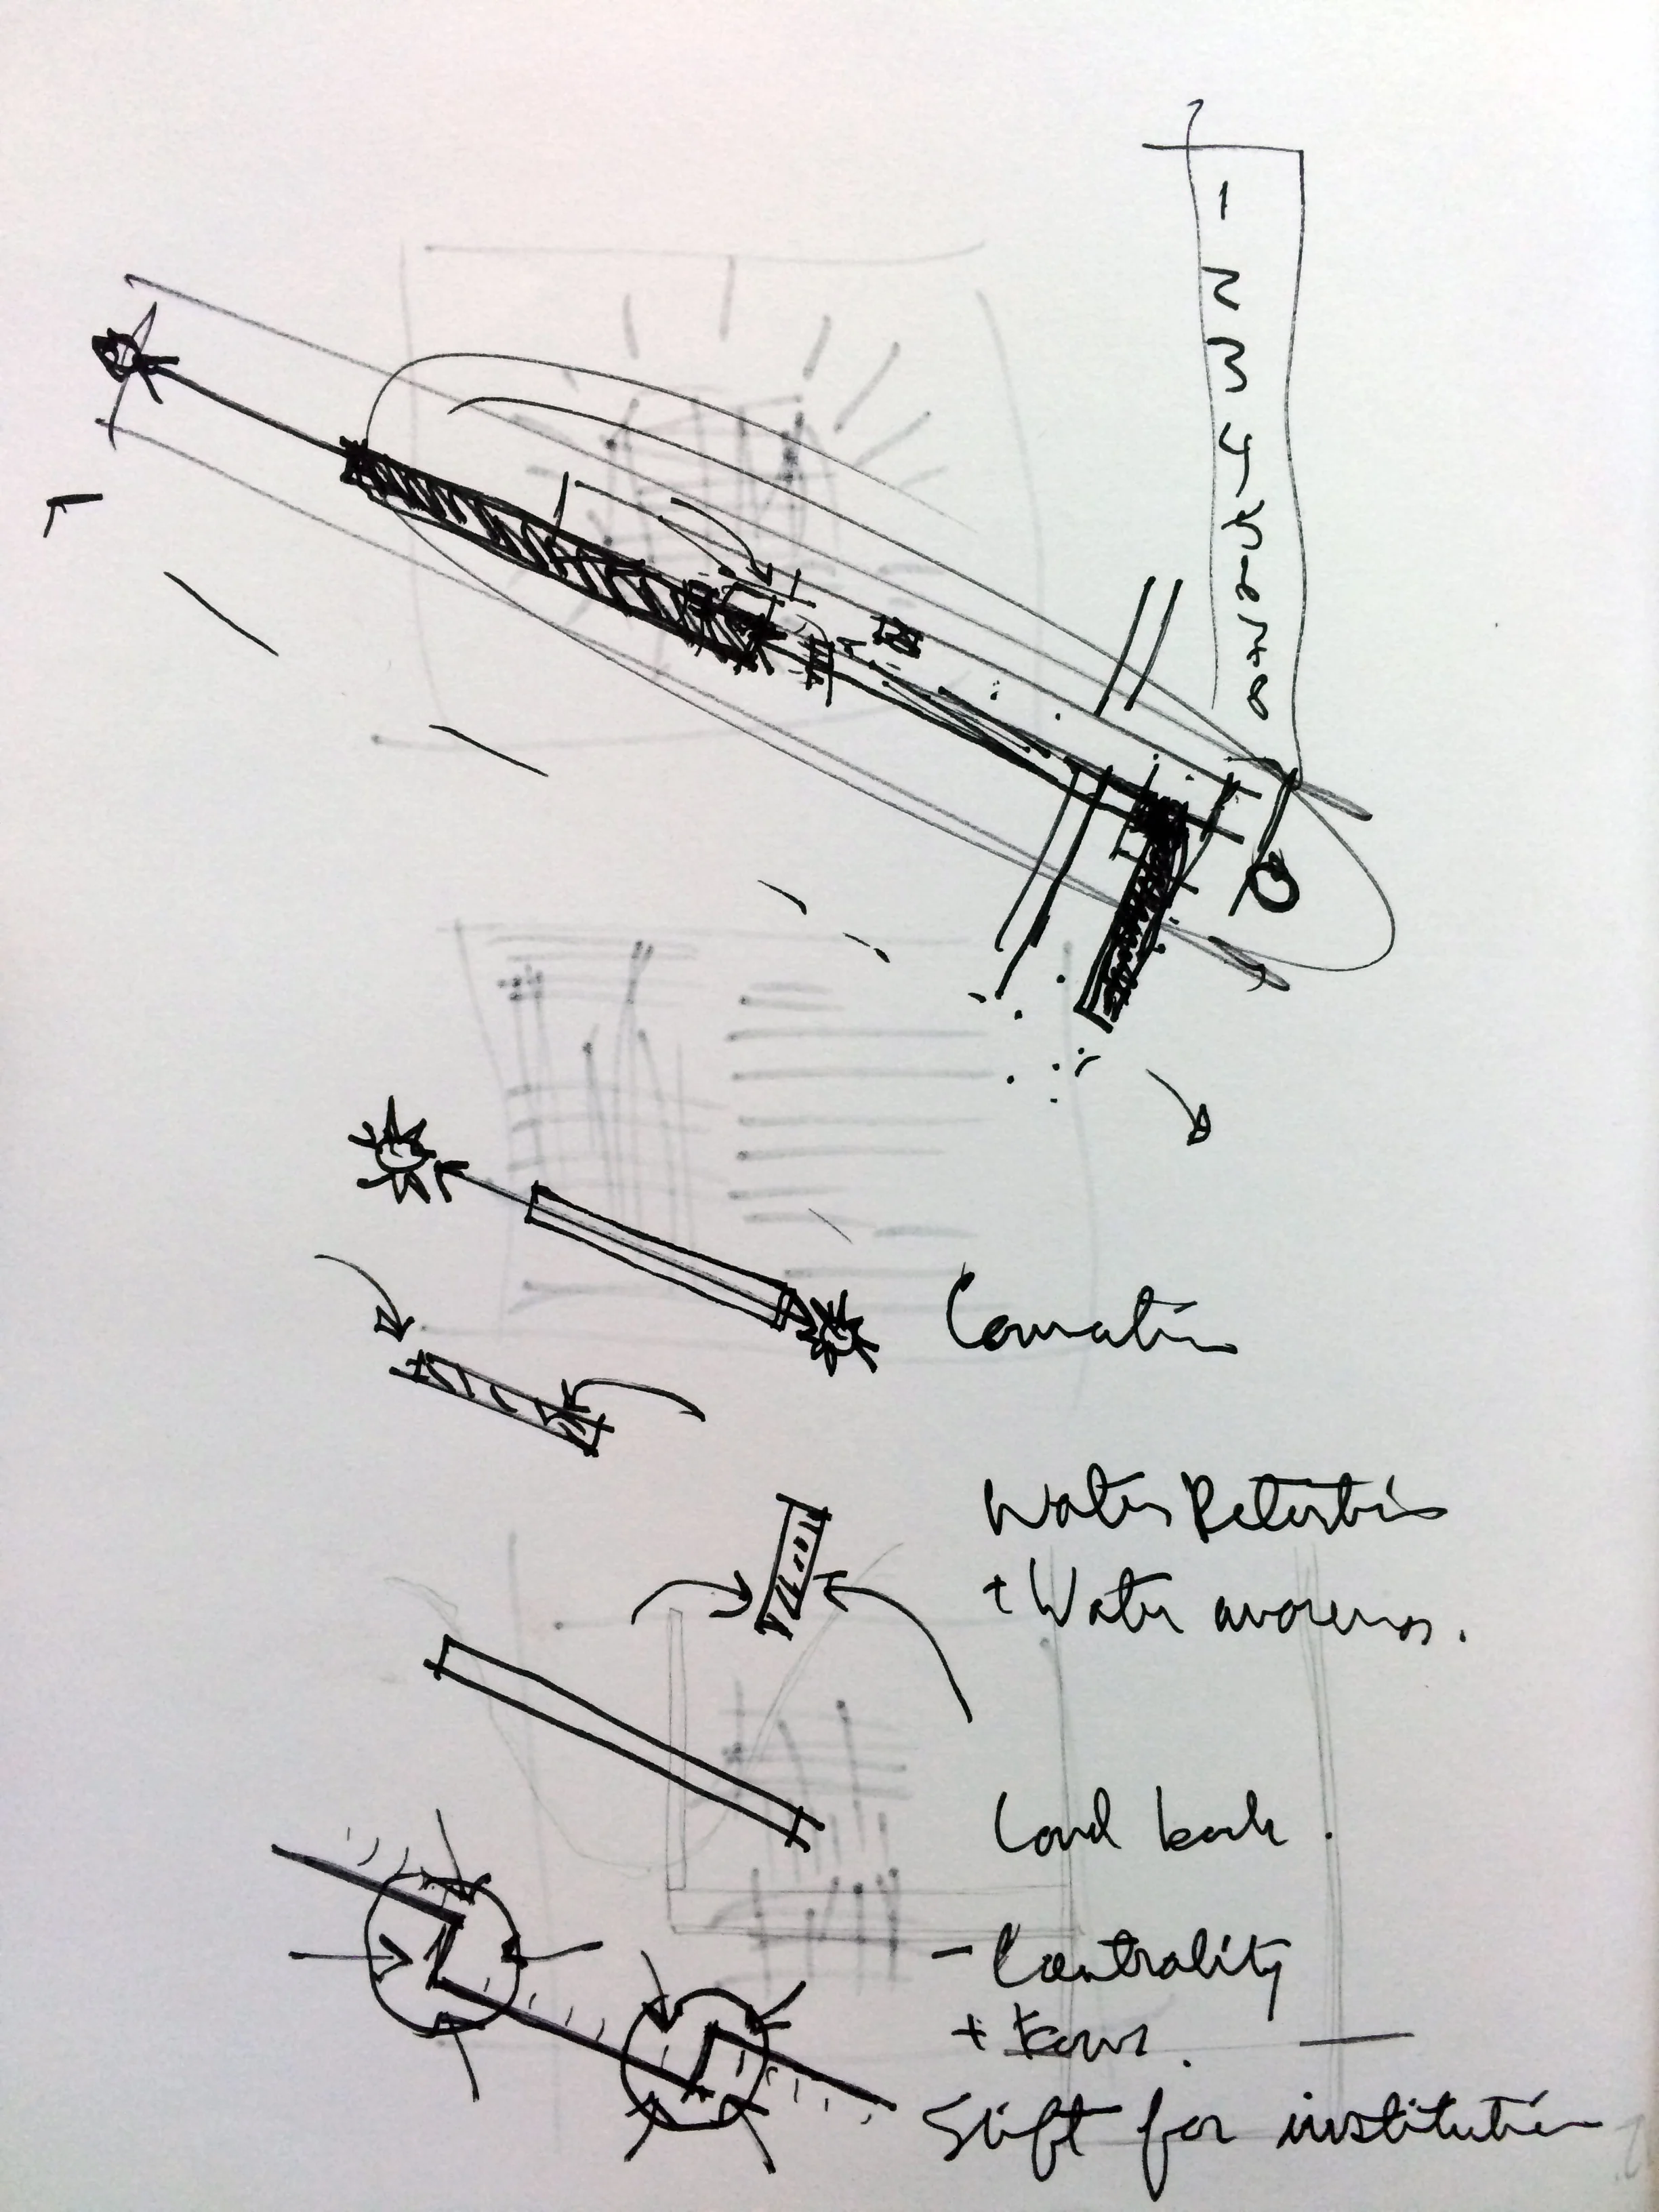 1
2
3
4
5
6
7
8
Water Retention
+ Water awareness.
Land bank.
- Centrality
+ Focus.
Shift for institution